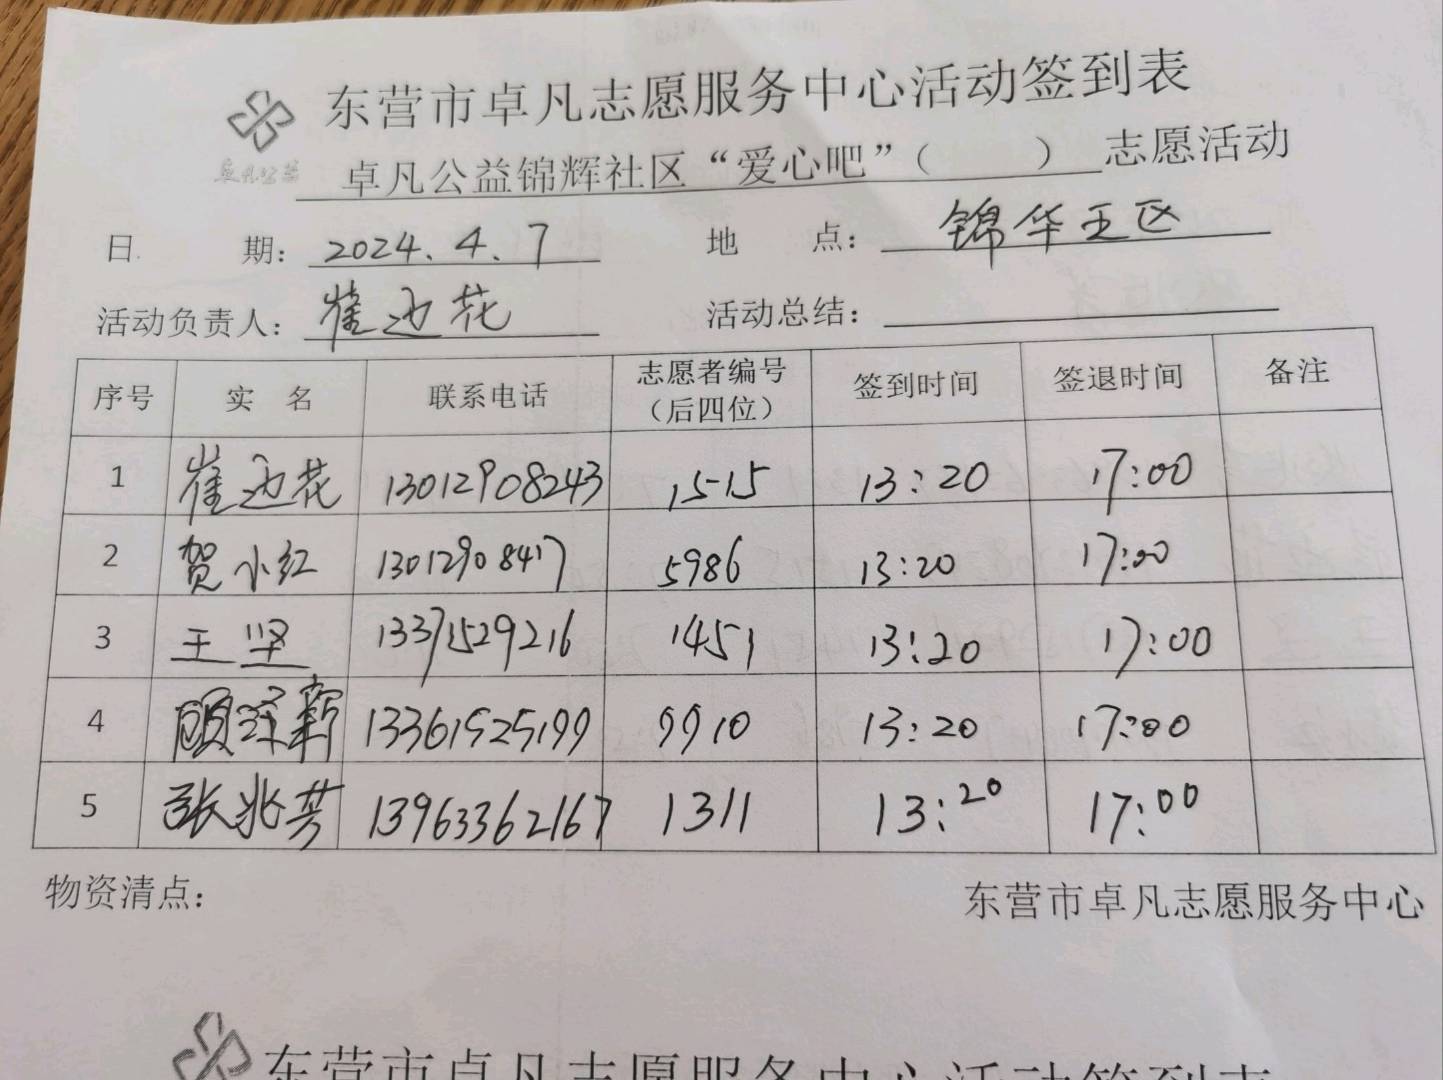 东营市卓凡志愿服务中心活动签到表
卓凡公益
卓凡公益锦辉社区“爱心吧”（ ）志愿活动
日 期: 2024.4.7 地 点: 锦华五区
活动负责人: 崔迎花 活动总结:
序号 实 名 联系电话 志愿者编号（后四位） 签到时间 签退时间 备注
1 崔迎花 13012908243 1515 13:20 17:00
2 贺小红 13012908417 5986 13:20 17:00
3 王坚 13371529216 1451 13:20 17:00
4 顾 13361525199 9910 13:20 17:00
5 张兆芳 13963362167 1311 13:20 17:00
物资清点: 东营市卓凡志愿服务中心
东营市卓凡志愿服务中心活动签到表